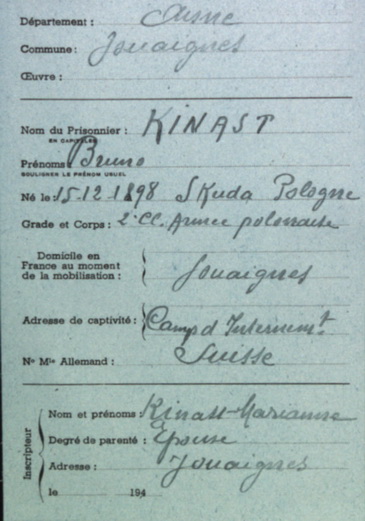 Département : Aisne
Commune : Jouaignes
Œuvre :
Nom du Prisonnier : KINAST
EN CAPITALES
Prénoms Bruno
SOULIGNER LE PRÉNOM USUEL
Né le : 15-12-1898 SKuda Pologne
Grade et Corps : 2e Cl. Armée polonaise
Domicile en
France au moment
de la mobilisation : Jouaignes
Adresse de captivité : Camp d'Internemt
Suisse
No Mle Allemand :
Inscripteur
Nom et prénoms : Kinast-Marianne
Degré de parenté : Epouse
Adresse : Jouaignes
le 194